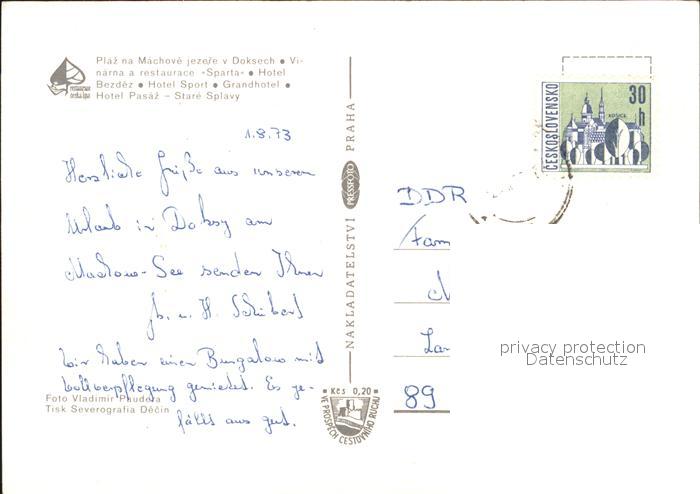 Pláž na Máchově jezeře v Doksech ● Vi-
nárna a restaurace »Sparta« ● Hotel
Bezděz ● Hotel Sport ● Grandhotel ●
Hotel Pasáž – Staré Splavy
1.8.73
Herzliche Grüße aus unserem
Urlaub in Doksy am
Machowa-See senden Ihnen
u. H. Schubert
Wir haben einen Bungalow mit
Vollverpflegung gemietet. Es ge-
fällt uns gut.
Foto Vladimír
Tisk Severografia Děčín
NAKLADATELSTVÍ PRESSFOTO PRAHA
Kčs 0,20
VE PROSPĚCH CESTOVNÍHO RUCHU
ČESKOSLOVENSKO
30 h
KOŠICE
DDR
Fam
La
89
privacy protection
Datenschutz